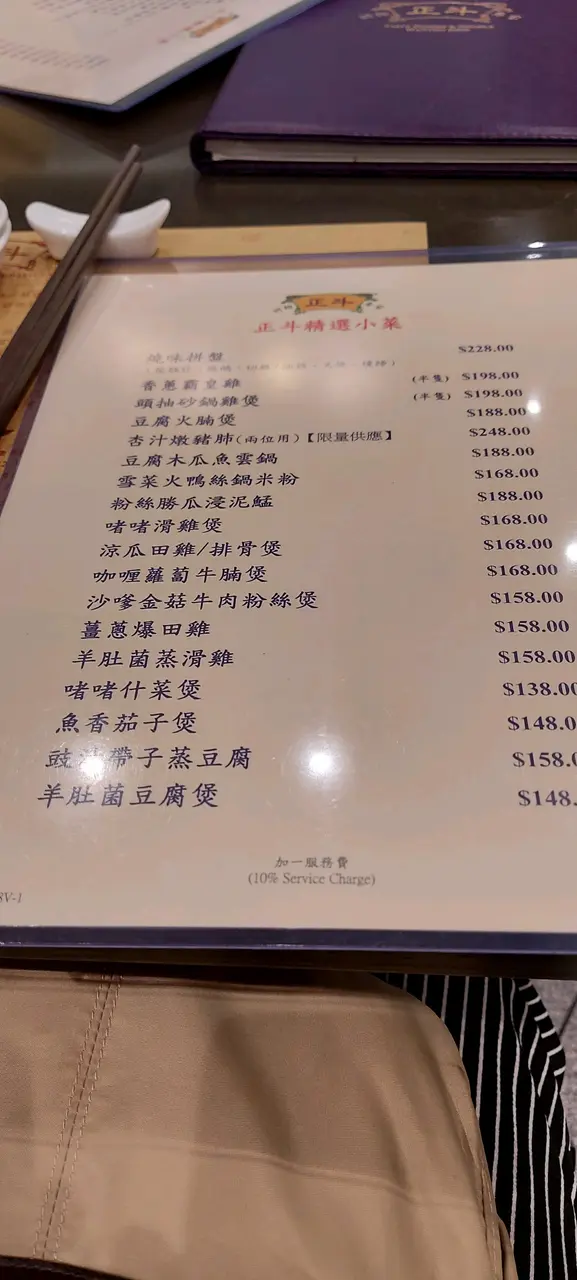 正斗
正斗
正斗精選小菜
燒味拼盤 $228.00
香蔥霸皇雞 (半隻) $198.00
頭抽砂鍋雞煲 (半隻) $198.00
豆腐火腩煲 $188.00
杏汁燉豬肺(兩位用)【限量供應】 $248.00
豆腐木瓜魚雲鍋 $188.00
雪菜火鴨絲鍋米粉 $168.00
粉絲勝瓜浸泥鯭 $188.00
啫啫滑雞煲 $168.00
涼瓜田雞/排骨煲 $168.00
咖喱蘿蔔牛腩煲 $168.00
沙嗲金菇牛肉粉絲煲 $158.00
薑蔥爆田雞 $158.00
羊肚菌蒸滑雞 $158.00
啫啫什菜煲 $138.00
魚香茄子煲 $148.0
豉汁帶子蒸豆腐 $158.0
羊肚菌豆腐煲 $148.
加一服務費
(10% Service Charge)
8V-1